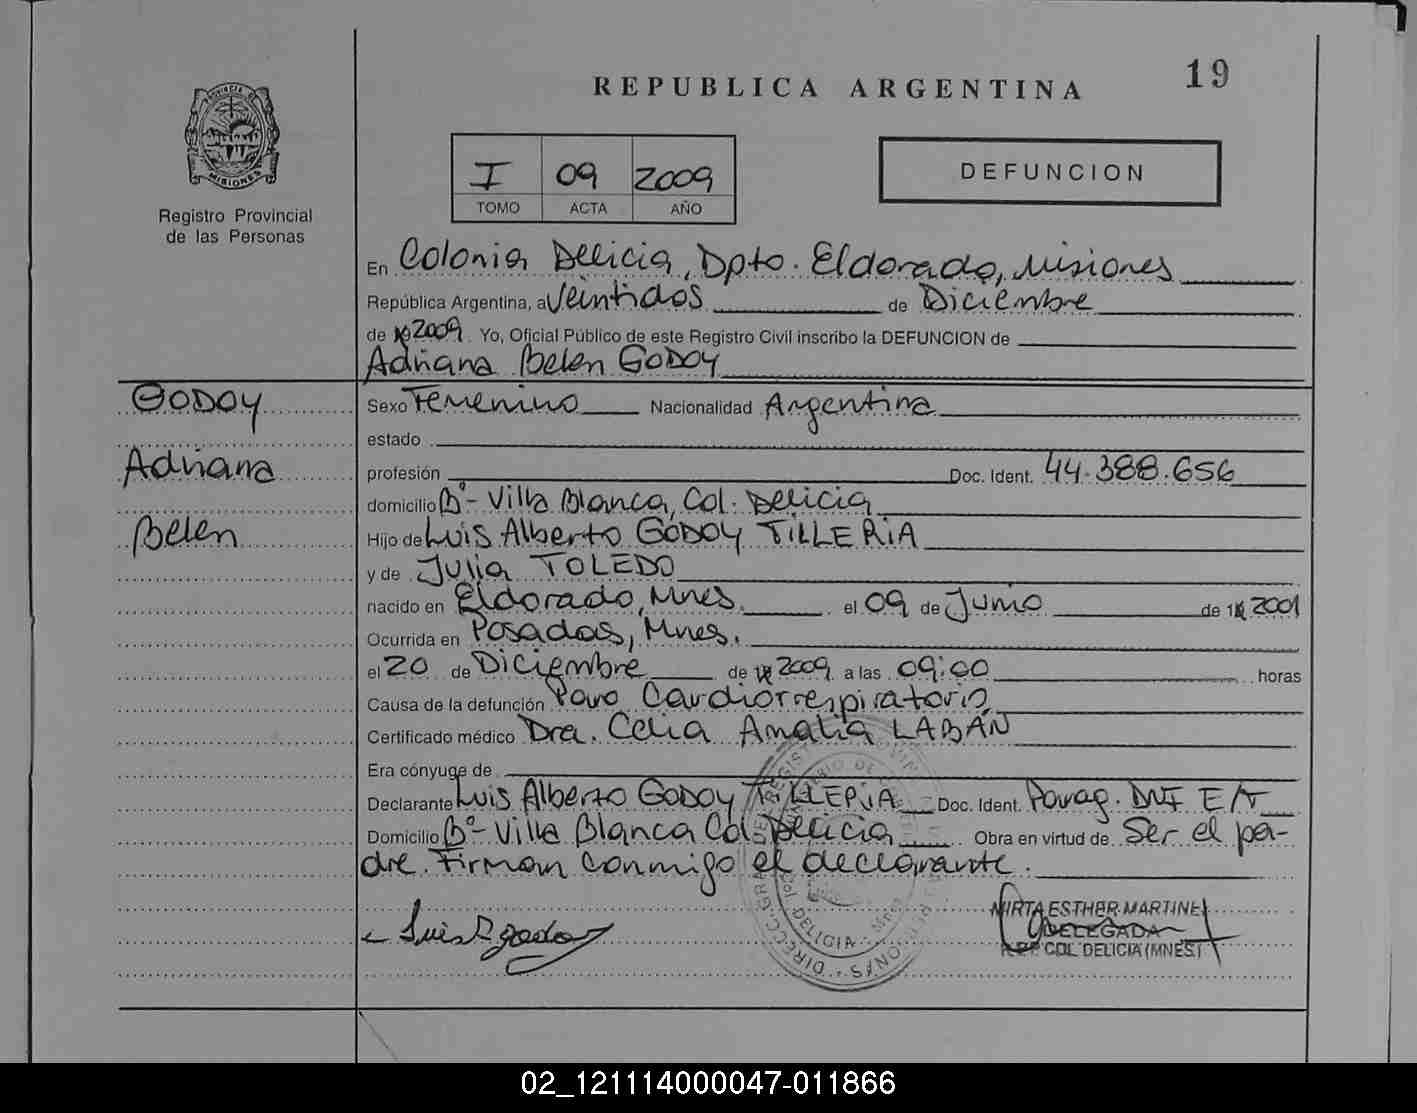 19
REPUBLICA ARGENTINA
PROVINCIA DE
MISIONES
Registro Provincial
de las Personas
I 09 2009
TOMO ACTA AÑO
DEFUNCION
En Colonia Delicia, Dpto. Eldorado, Misiones
República Argentina, a Veintidos de Diciembre
de 2009. Yo, Oficial Público de este Registro Civil inscribo la DEFUNCION de
Adriana Belen GODOY
GODOY
Adriana
Belen
Sexo Femenino Nacionalidad Argentina
estado
profesión Doc. Ident. 44.388.656
domicilio Bº- Villa Blanca, Col. Delicia
Hijo de Luis Alberto GODOY TILLERIA
y de Julia TOLEDO
nacido en Eldorado, Mnes. el 09 de Junio de 2001
Ocurrida en Posadas, Mnes.
el 20 de Diciembre de 2009 a las 09:00 horas
Causa de la defunción Paro Cardiorrespiratorio
Certificado médico Dra. Celia Amalia LABÁN
Era cónyuge de
Declarante Luis Alberto GODOY TILLERIA Doc. Ident. Parag. DNI E/T
Domicilio Bº- Villa Blanca Col. Delicia Obra en virtud de Ser el pa-
dre. Firman conmigo el declarante.
MIRTA ESTHER MARTINEZ
DELEGADA
COL DELICIA (MNES.)
02_121114000047-011866